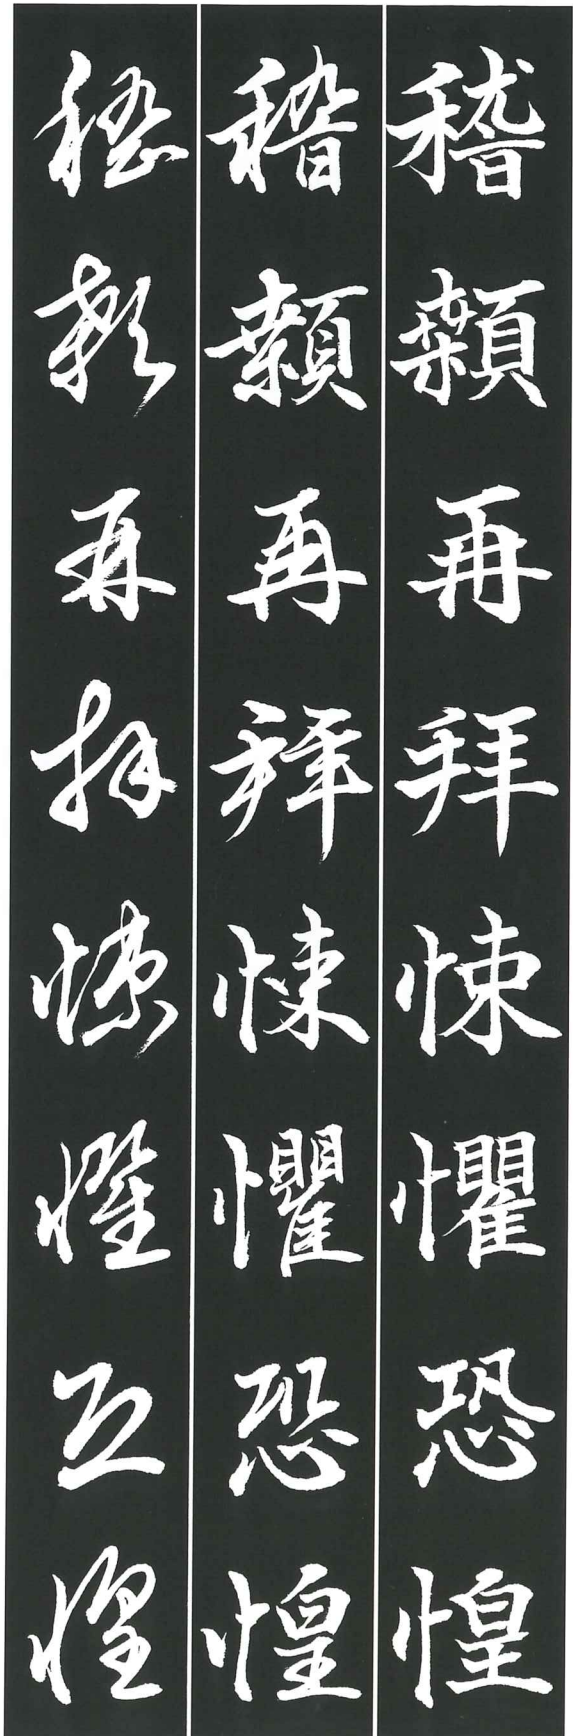 稽顙再拜悚懼恐惶
稽顙再拜悚懼恐惶
稽顙再拜悚懼恐惶